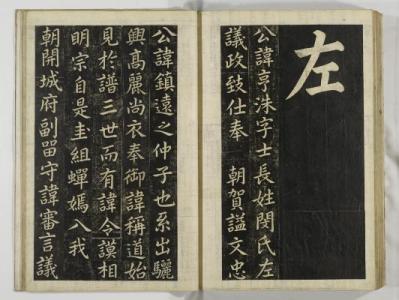 左
公諱亨洙字士長姓閔氏左
議政致仕奉　朝賀謚文忠
公諱鎭遠之仲子也系出驪
興高麗尚衣奉御諱稱道始
見於譜三世而有諱令謨相
明宗自是圭組蟬嫣入我
朝開城府副留守諱審言議